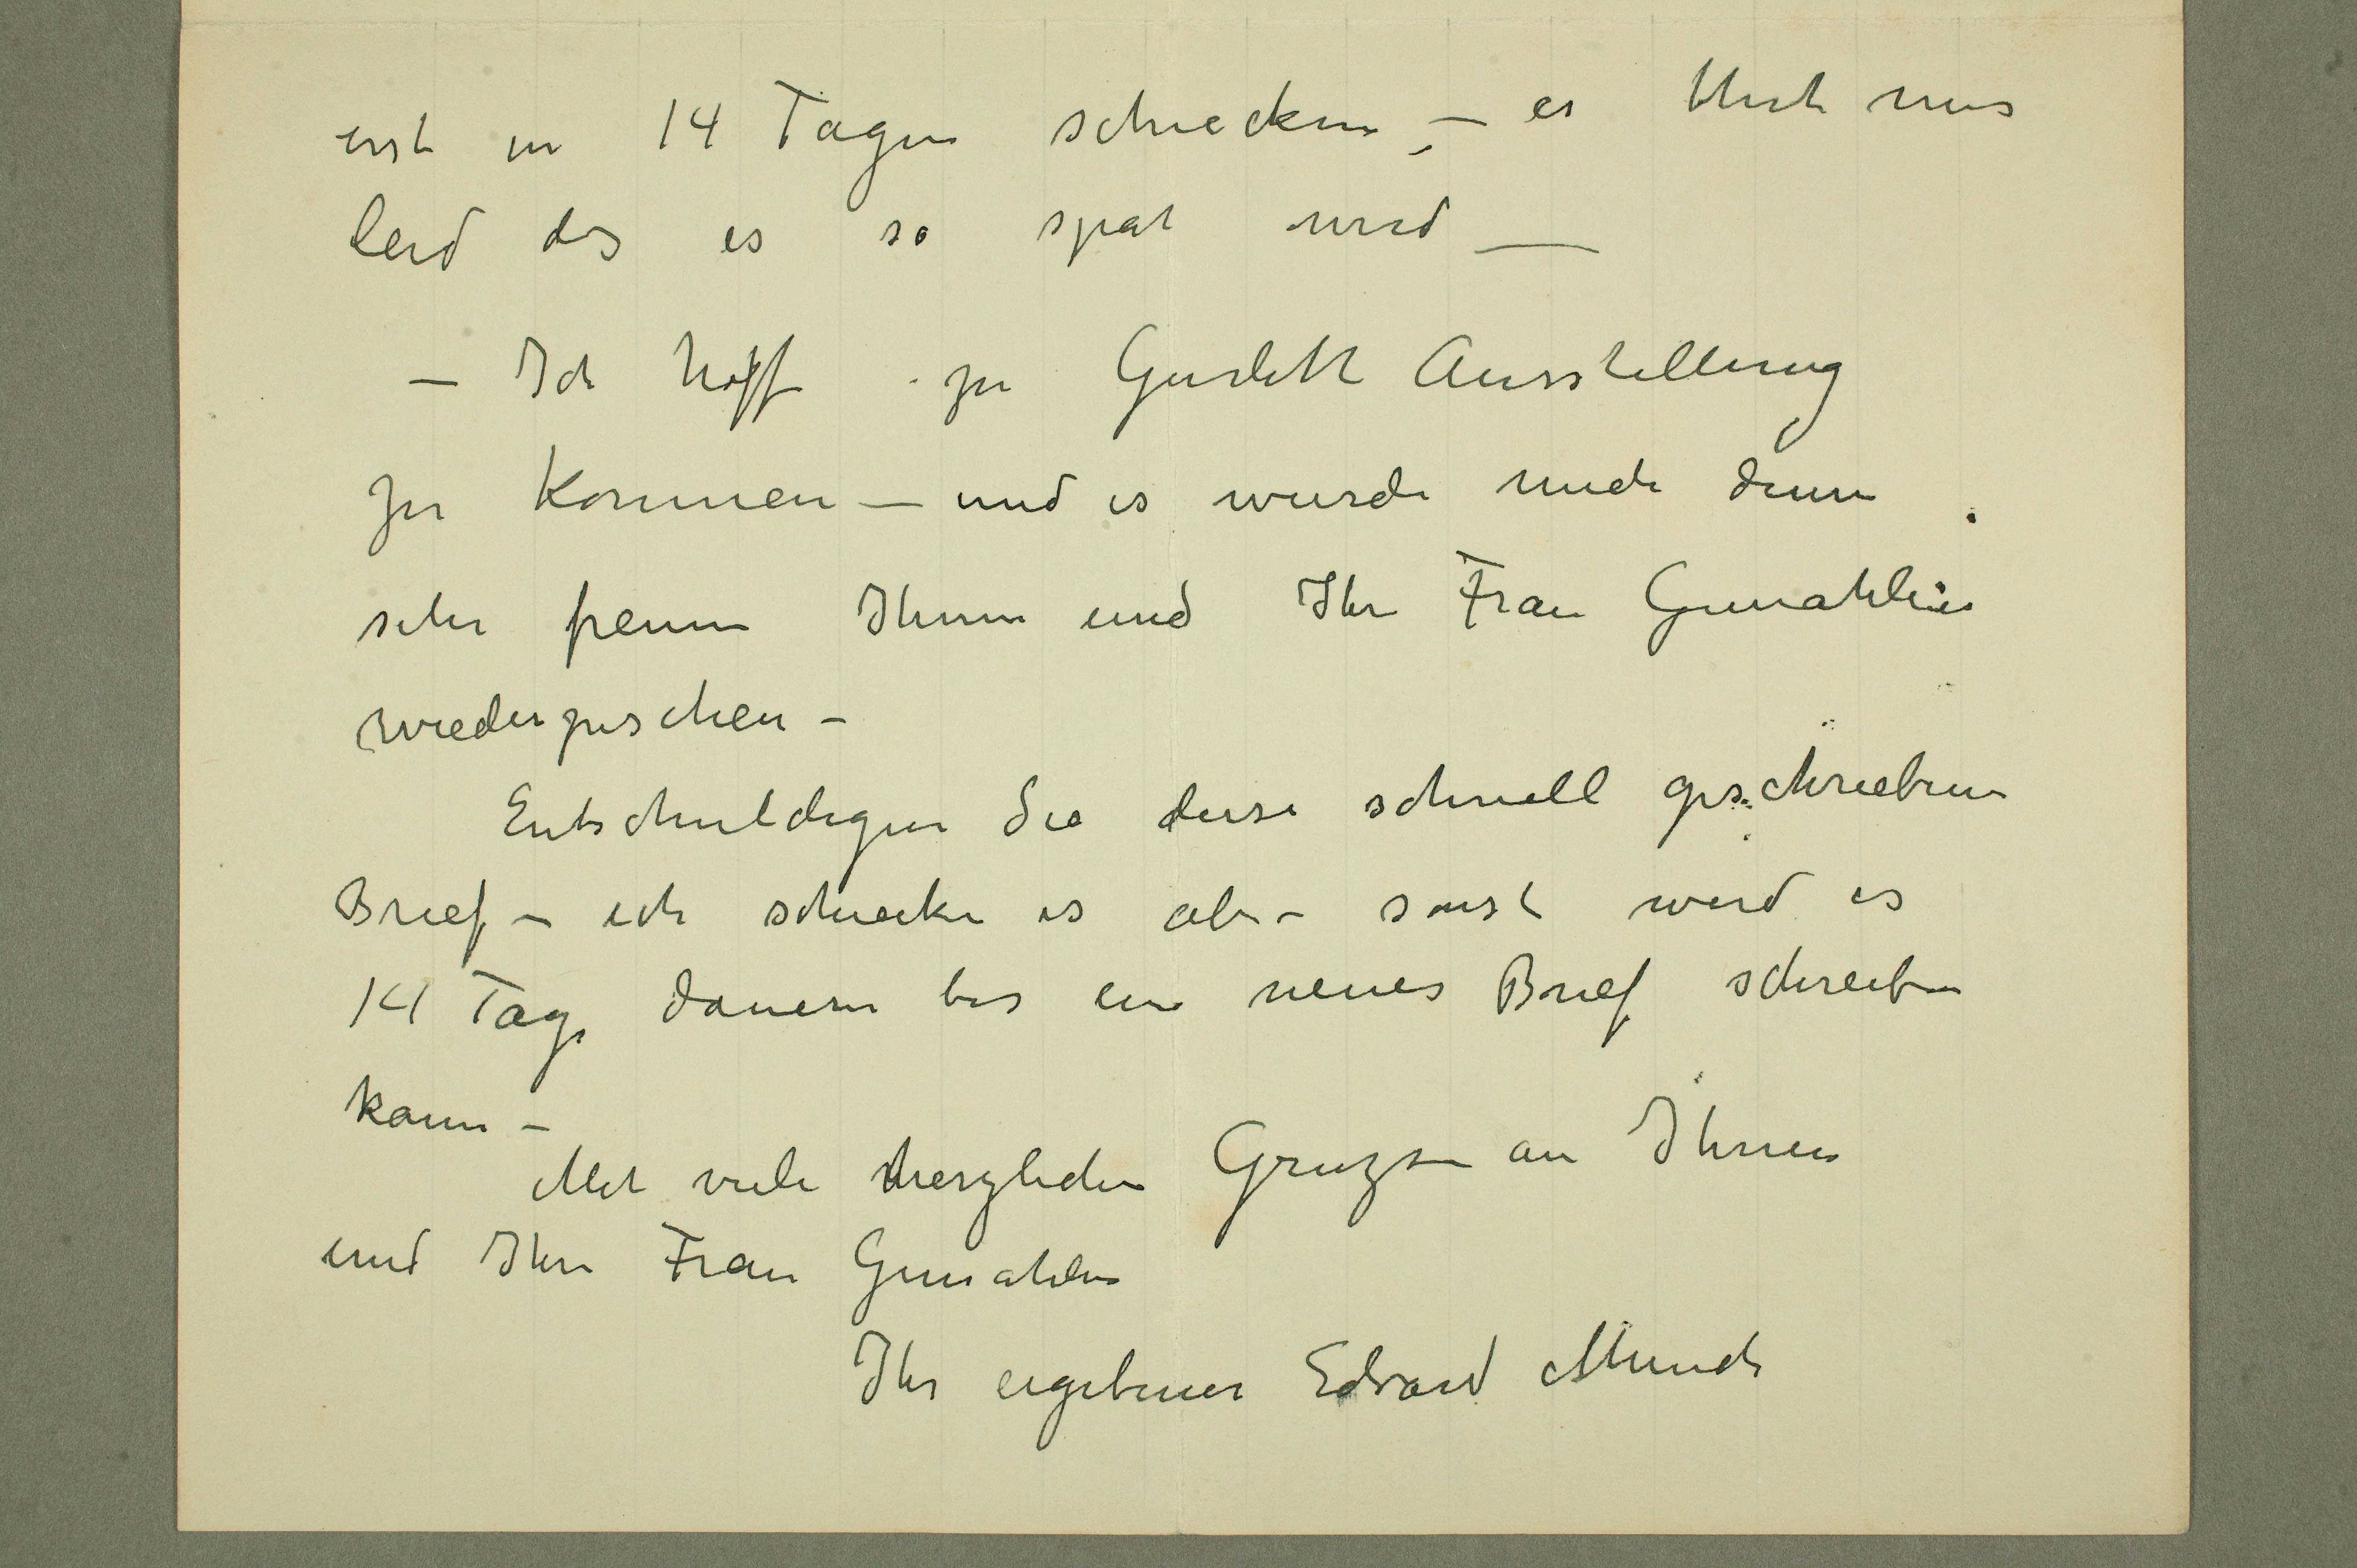 erst in 14 Tagen schiecken, – es thut mir
leid das es so spät wird —
– Ich hoffe zu Gurlitt Ausstellung
zu kommen – und es wurde mich dann
sehr freuen Ihnen und Ihr Frau Gemahlin
wiederzusehen –
Entschuldigen Sie diese schnell geschrieben
Brief – ich schicke es ab – sonst wird es
14 Tage dauern bis ein neues Brief schreiben
kann –
Mit viele herzlichen Gruzsen an Ihnen
und Ihre Frau Gemahlin
Ihr ergebener Edvard Munch